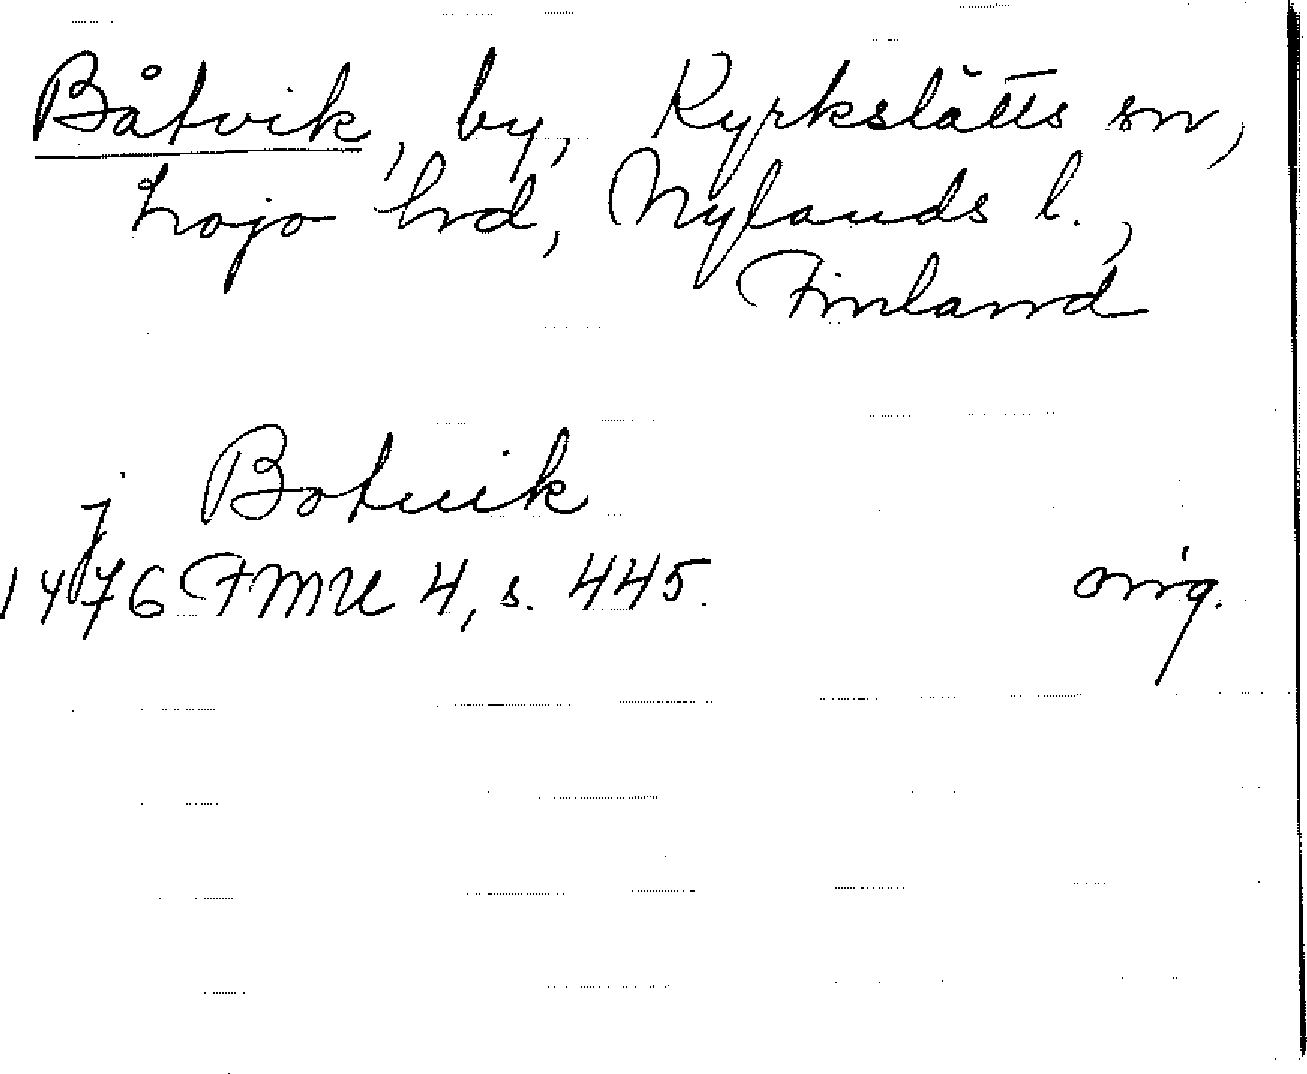 Båtvik, by, Kyrkslätts sn,
Lojo hrd, Nylands l.,
Finland
j Botuik
1476 FMU 4, s. 445. orig.